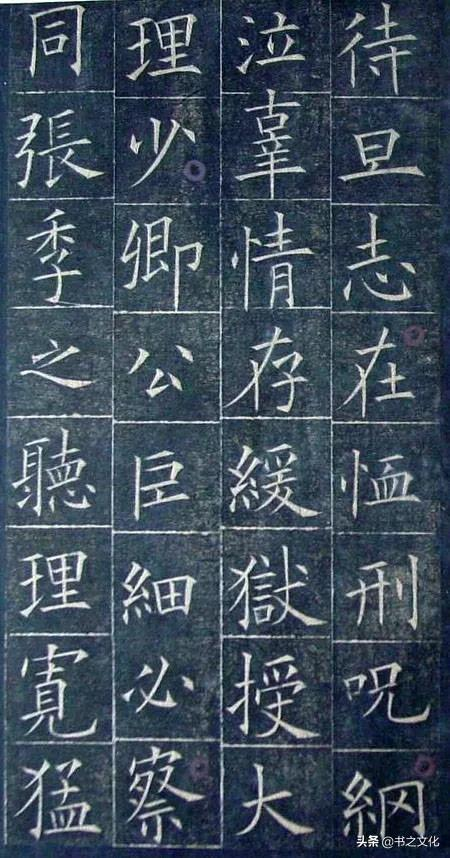 待旦志在恤刑呪網
泣辜情存緩獄授大
理少卿公巨細必察
同張季之聽理寬猛
头条 @书之文化